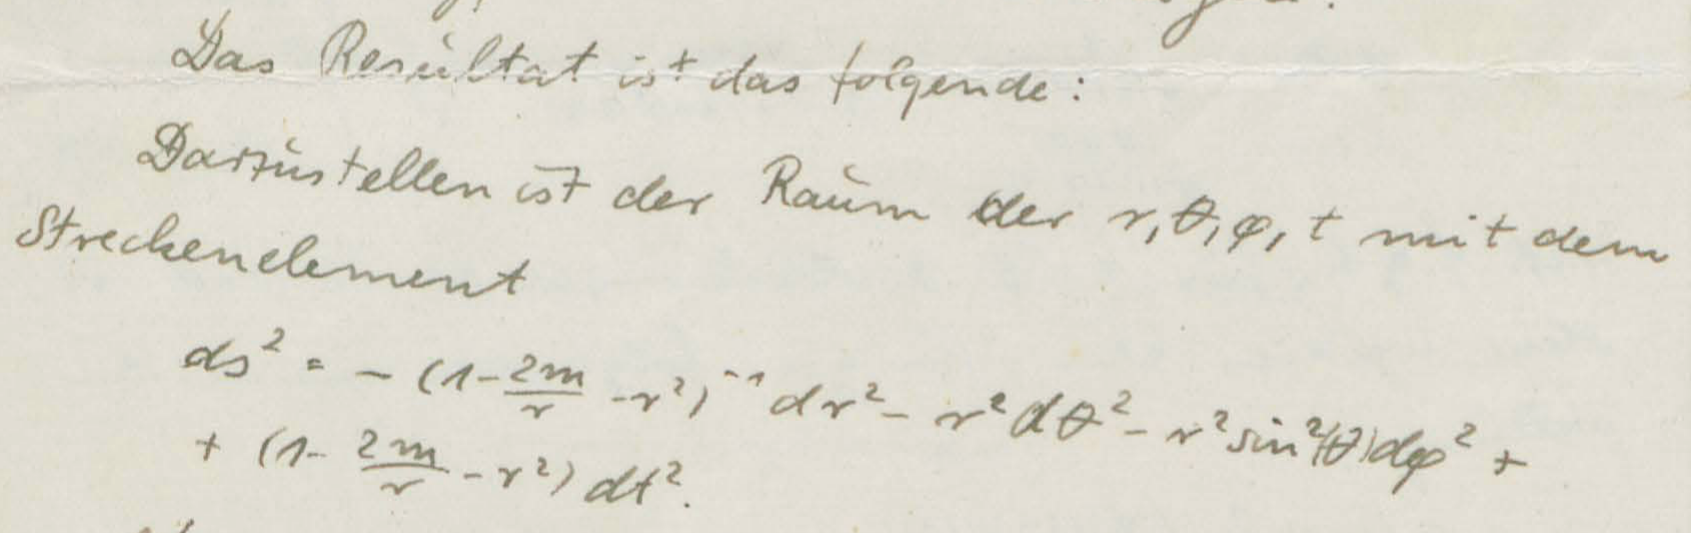 Das Resultat ist das folgende:
Darzustellen ist der Raum der r, θ, φ, t mit dem
Streckenelement
ds² = − (1 − 2m/r − r²)⁻¹ dr² − r² dθ² − r² sin²(θ) dφ² +
+ (1 − 2m/r − r²) dt².